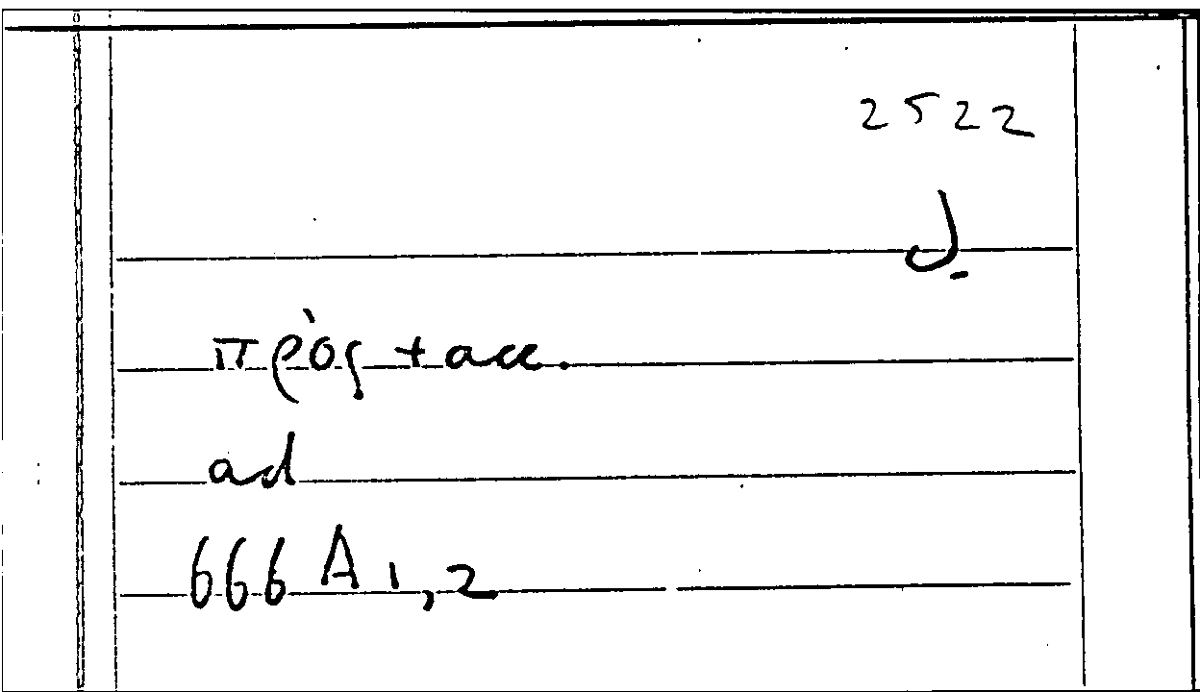 2522
J.
πρὸς + acc.
ad
666 A 1, 2